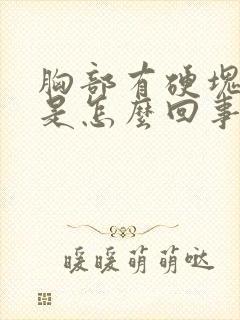 胸部有硬塊
是怎麼回事
暖暖萌萌噠